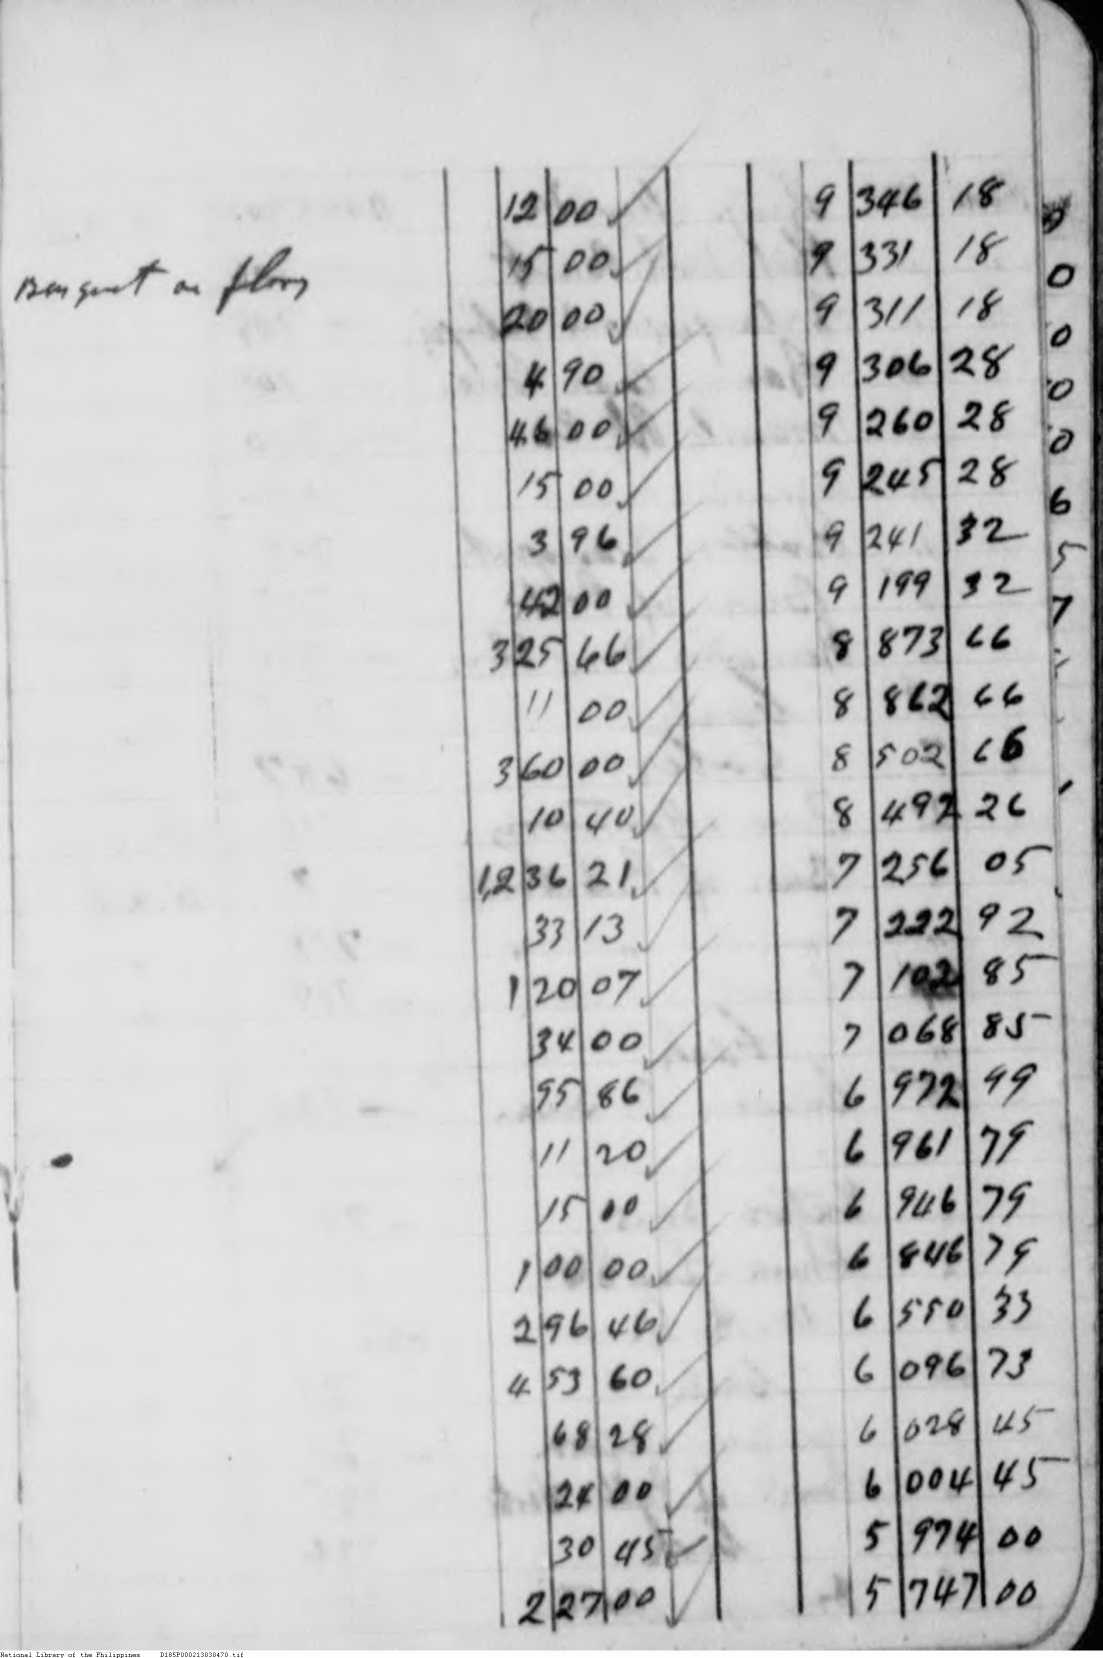 12 00 9 346 18
15 00 9 331 18
Banquet on floor
20 00 9 311 18
4 90 9 306 28
46 00 9 260 28
15 00 9 245 28
3 96 9 241 32
42 00 9 199 32
325 66 8 873 66
11 00 8 862 66
360 00 8 502 66
10 40 8 492 26
1,236 21 7 256 05
33 13 7 222 92
120 07 7 102 85
34 00 7 068 85
95 86 6 972 99
11 20 6 961 79
15 00 6 946 79
100 00 6 846 79
296 46 6 550 33
453 60 6 096 73
68 28 6 028 45
24 00 6 004 45
30 45 5 974 00
227 00 5 747 00
National Library of the Philippines D185P000213838470.tif